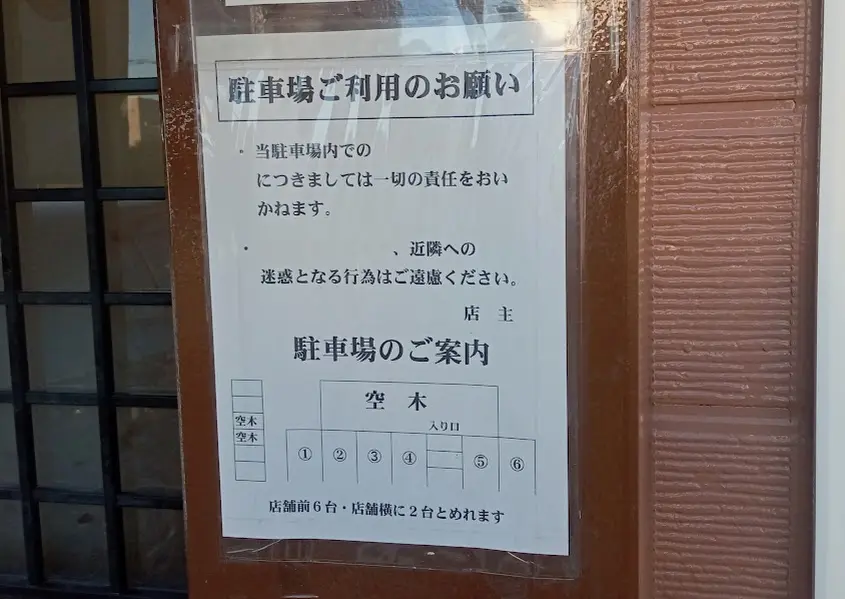 駐車場ご利用のお願い
・当駐車場内での
につきましては一切の責任をおい
かねます。
・　　　　　　　、近隣への
迷惑となる行為はご遠慮ください。
店　主
駐車場のご案内
空　木
入り口
空木
空木
① ② ③ ④ ⑤ ⑥
店舗前6台・店舗横に2台とめれます